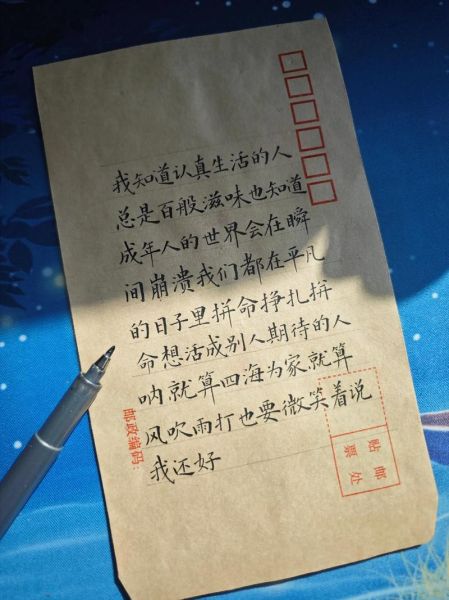 我知道认真生活的人
总是百般滋味也知道
成年人的世界会在瞬
间崩溃我们都在平凡
的日子里拼命挣扎拼
命想活成别人期待的人
呐就算四海为家就算
风吹雨打也要微笑着说
我还好
邮政编码：
贴邮
票处